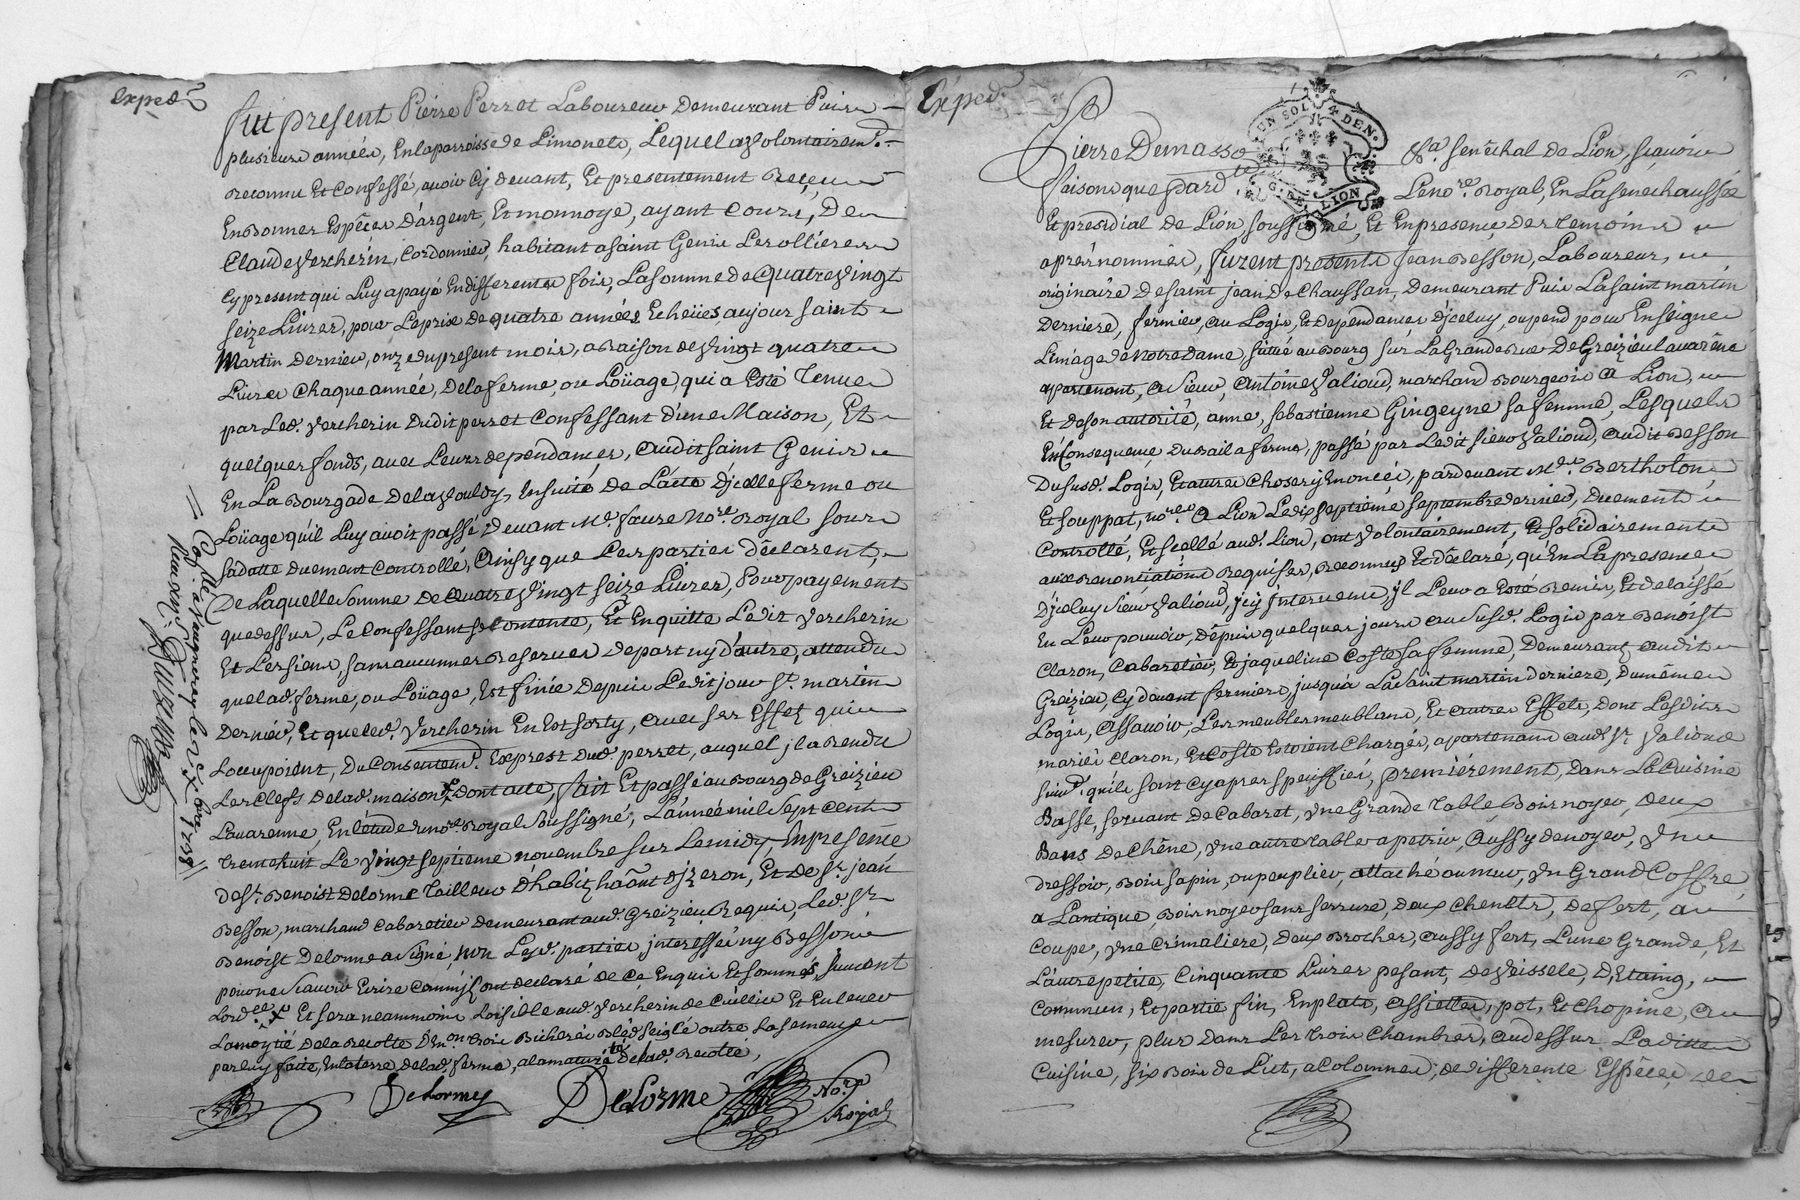 Exped.
fut present Pierre Perret Laboureur Demeurant Puis
plusieurs années, En la parroisse de Limonets, Lequel a volontairem.t
reconnu Et Confessé, avoir Cy devant, Et presentement Reçeu
En Bonnes Espéces D'argent, Et monnoye, ayant Cours, De
Claude Vercherin, Cordonnier, habitant a saint Genis Lerollieres
Cy present qui Luy a payé En differentes fois, La somme de Quatre vingt
seize Livres, pour Le prix de quatre années Echeües, au jour saint
Martin Dernier, onze du present mois, a Raison de vingt quatre
Livres Chaque année, De la ferme, ou Loüage, qui a Esté Tenue
par Led. Vercherin Dudit perret Confessant D'une Maison, Et
quelques fonds, avec Leurs dependances, audit saint Genis
En La Bourgade de la , Ensuite De L'acte D'jcelle ferme ou
Loüage qu'il Luy avoit passé Devant M.e faure No.re Royal sous
sa datte duement Controllé, Ainsy que Les parties Déclarent,
De Laquelle somme de Quatre vingt seize Livres, Pour payement
que dessus, Le Confessant se Contente, Et En quitte Ledit Vercherin
Et Les siens, sans aucunnes Reserves de part ny d'autre, attendu
que lad. ferme, ou Loüage, Est finie Depuis Ledit jour S.t martin
Dernier, Et que led. Vercherin En Est sorty, avec ses Effets qui
L'occupoient, Du Consentem.t Exprest Dud. perret, auquel jl a rendu
Les Clefs De lad. maison, Dont acte, fait Et passé au Bourg de Greizieu
Lavarenne, En l'étude du no.re Royal Soussigné, L'année mil sept cent
trente huit Le vingt septieme novembre sur Le midy, En presence
de S.r Benoist Delorme Tailleur D'habitz hãnt d'jzeron, Et de S.r jean
Besson, marchand Cabaretier demeurant aud. Greizieu Requis, Led. S.r
Benoist Delorme a signé, non Les d. parties, interessées ny Besson
pour ne sçavoir Ecrire Comm'jls ont declaré de Ce Enquis Et sommés, suivant
L'ord.ce Et sera neammoins Loisible aud. Vercherin de Cüellir Et Enlever
La moytié de la recolte D'Env.on trois Bicherées Bled seigle outre La semence
par luy faite, En la terre de lad. ferme, a la maturité de lad. Recolte,
Delorme
Delorme
No.re
Royal
Con.llé a Vaugneray le
1738
Exped.
Pierre Demasso
Sénéchal de Lion, sçavoir
faisons que pard.t
Le no.re Royal, En La senechaussée
Et présidial de Lion, soussigné, Et En presence des temoins
aprés nommés, furent presents Jean Besson, Laboureur,
originaire De saint jean De Chaussan, Demeurant Puis La saint martin
Derniere, fermier, au Logis, Et dependances D'jceluy, ou pend pour Enseigne
L'image de Notre Dame, situé au Bourg sur La Grande Rue De Greizieu Lavarêne
apartenant, au sieur, Antoine Valioud, marchand Bourgeois a Lion,
Et de son autorité, anne, sebastienne Gingeyne sa femme, Lesquels
En Consequence du Bail a ferme, passé par Ledit sieur Valioud, audit Besson
Du susd. Logis, Et autres Choses y Enoncées, pardevant M.es Bertholon
Et souppat, no.res a Lion Le dix septiéme septembre dernier, duement
Controllé, Et scellé aud. Lion, ont volontairement, Et solidairement
aux renonciations Requises, Reconnus Et déclaré, qu'En La presence
D'jceluy sieur Valioud, jcy Intervenu, jl Leur a Esté Remis, Et delaissé
En Leur pouvoir, Dépuis quelques jours au Sus.d Logis par Benoist
Claron, Cabaretier, Et jaqueline Coste sa femme, Demeurants audit
Greizieu, Cy davant fermiers, jusqu'à La saint martin derniere, Du même
Logis, Assavoir, Les meubles meublans, Et autres Effets, Dont Lesdits
mariés Claron, Et Coste Estoient Chargés, apartenans aud. S.r Valioud
suiv.t qu'ils sont Cy aprés spéciffiés, premiérement, Dans La Cuisine
Basse, servant de Cabaret, vne Grande Table Bois noyer, Deux
Bans De Chêne, vne autre table a petrir, Aussy de noyer, vn
dressoir, Bois sapin, ou peuplier, attaché au mur, vn Grand Coffre
a L'antique, Bois noyer sans serrure, deux Chenêts, de fert, a
Coupe, vne Crimaliere, Deux Broches, aussy fert, L'une Grande, Et
L'autre petite, Cinquante Livres pesant, de veissele, D'Etaing,
Commun, Et partie fin, En plats, assiettes, pot, Et Chopine, a
mesurer, plus Dans Les trois Chambres, audessus Laditte
Cuisine, six Bois de Lict, a Colomnes, de differente Espêce, de
UN SOL 4 DEN.
G. DE LION